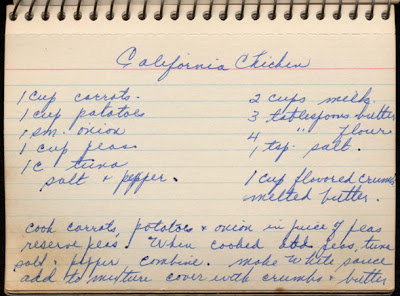 California Chicken
1 cup carrots.
1 cup potatoes
1 sm. onion
1 cup peas
1 c tuna
salt & pepper.
2 cups milk.
3 tablespoons butter
4 " flour
1 tsp. salt.
1 cup flavored crumbs
melted butter.
cook carrots, potatoes & onion in juice of peas
reserve peas. When cooked add peas, tuna
salt & pepper combine. make white sauce
add to mixture cover with crumbs & butter